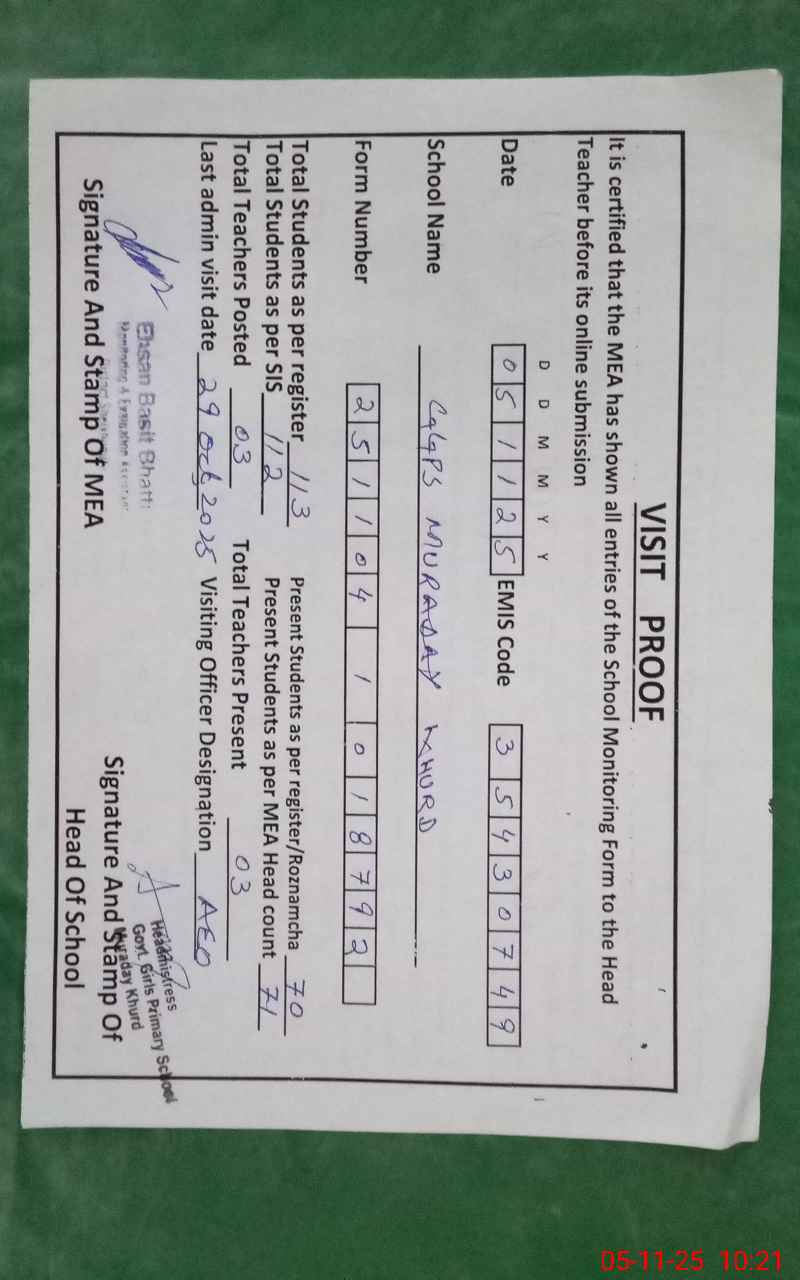 VISIT PROOF
It is certified that the MEA has shown all entries of the School Monitoring Form to the Head
Teacher before its online submission
D D M M Y Y
Date 0 5 1 1 2 5 EMIS Code 3 5 4 3 0 7 4 9
School Name GGPS MURADAY KHURD
Form Number 2 5 1 1 0 4 1 0 1 8 7 9 2
Total Students as per register 113 Present Students as per register/Roznamcha 70
Total Students as per SIS 112 Present Students as per MEA Head count 71
Total Teachers Posted 03 Total Teachers Present 03
Last admin visit date 29 Oct 2025 Visiting Officer Designation AEO
Ehsan Basit Bhatti
Monitoring & Evaluation Assistant
Signature And Stamp Of MEA
Headmistress
Govt. Girls Primary School
Muraday Khurd
Signature And Stamp Of
Head Of School
05-11-25 10:21